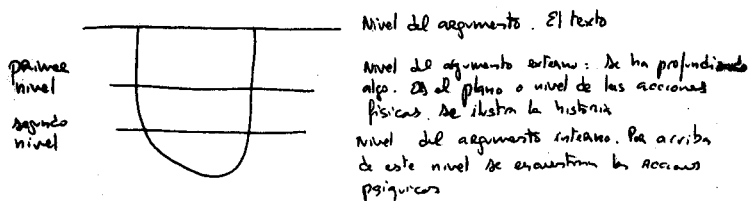 Nivel del argumento. El texto
primer
nivel
Nivel del argumento externo: Se ha profundizado
algo. Es el plano o nivel de las acciones
físicas. se ilustra la historia
segundo
nivel
Nivel del argumento interno. Por arriba
de este nivel se encuentran las acciones
psíquicas